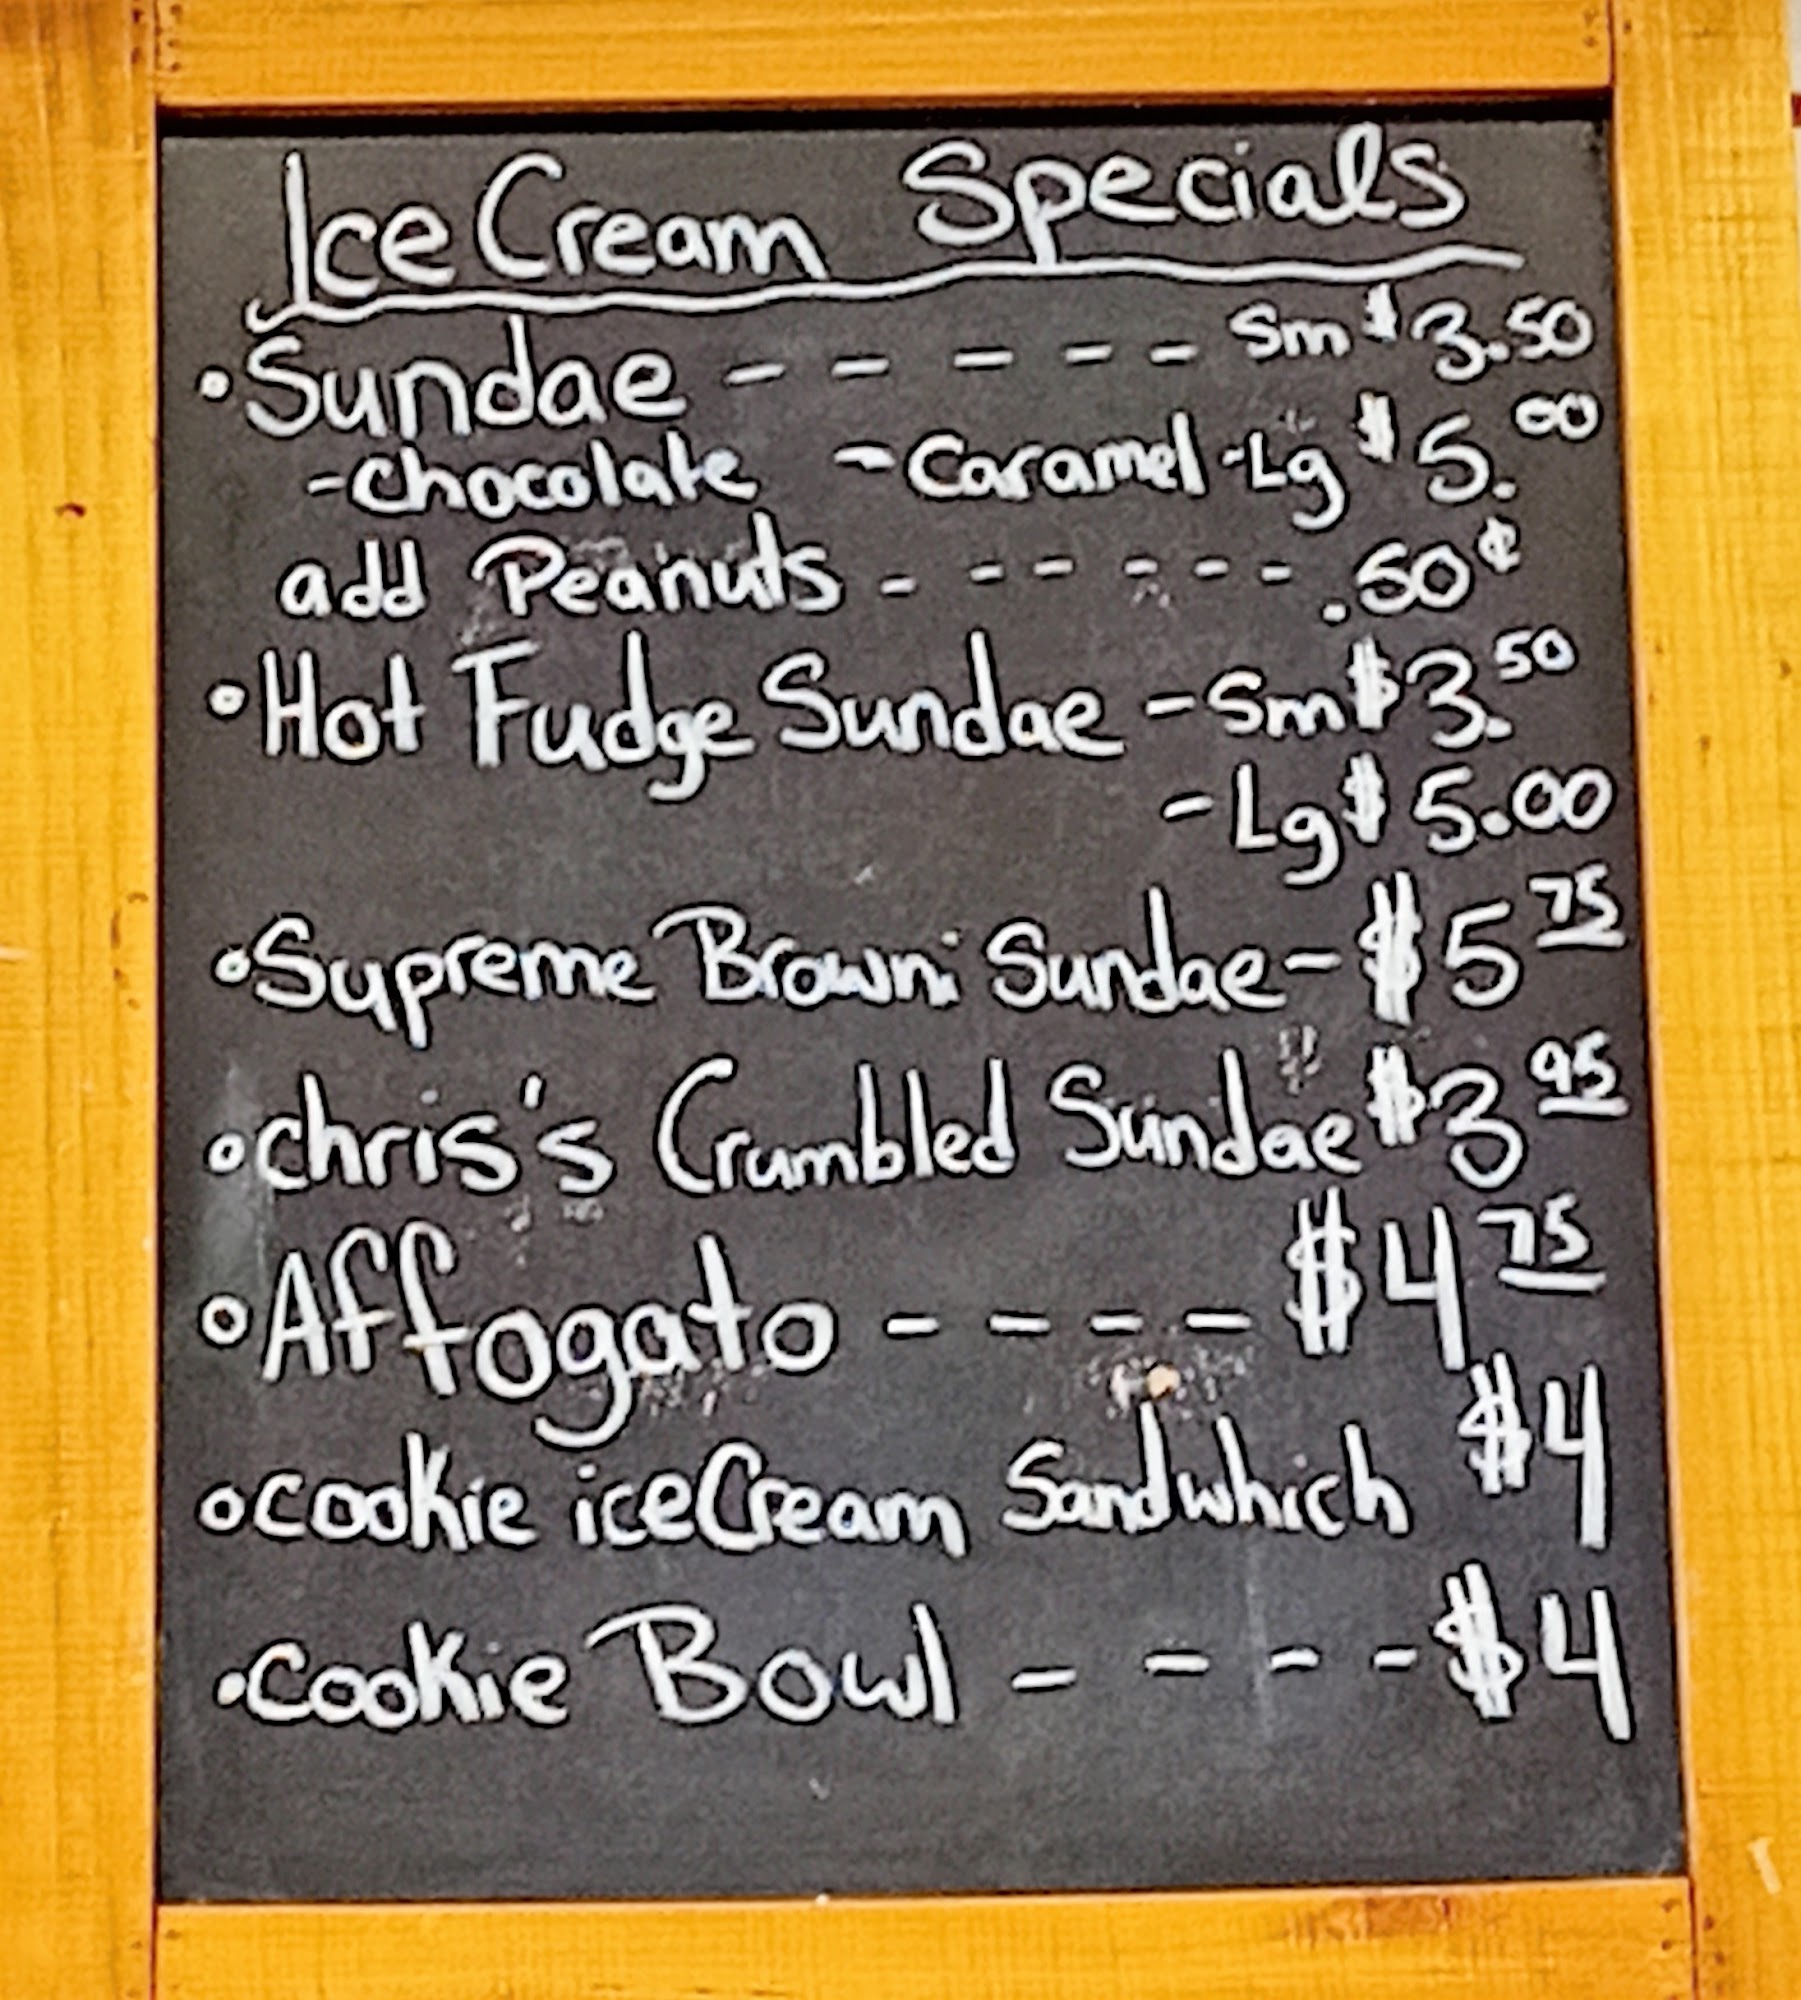 Ice Cream Specials
• Sundae - - - - - Sm $3.50
- Chocolate - Caramel - Lg $5.00
add Peanuts - - - - - - .50¢
• Hot Fudge Sundae - Sm $3.50
- Lg $5.00
• Supreme Brown Sundae - $5 75
• Chris's Crumbled Sundae $3 95
• Affogato - - - - $4 75
• Cookie ice Cream Sandwhich $4
• Cookie Bowl - - - - $4